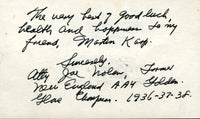 The very best of good luck,
health and happiness to my
friend, Martin Karp.
Sincerely,
Atty Joe Nolan, Former
New England AAU Golden
Glove Champion. 1936-37-38.